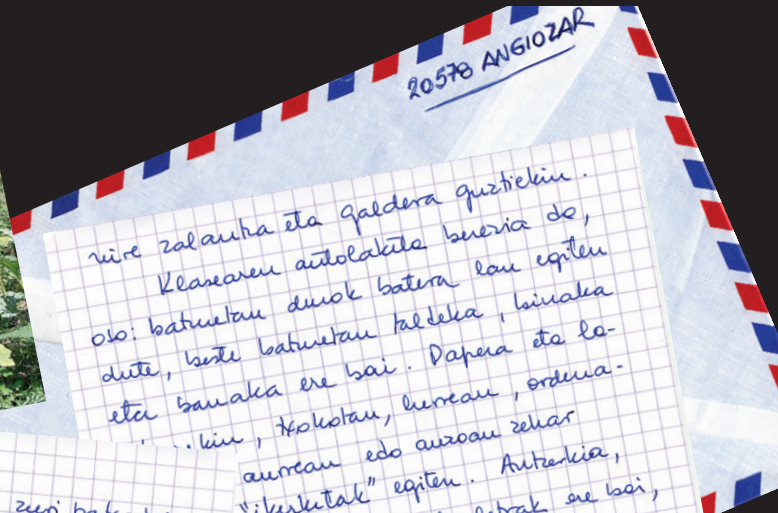 20570 ANGIOZAR
nire zalantza eta galdera guztiekin.
Klasearen antolaketa berezia da,
oso: batzuetan denok batera lan egiten
dute, beste batzuetan taldeka, binaka
eta banaka ere bai. Papera eta la-
kin, txokotan, lurrean, ordena-
aurrean edo auzoan zehar
"ikerketak" egiten. Antzerkia,
ere bai,
zuri